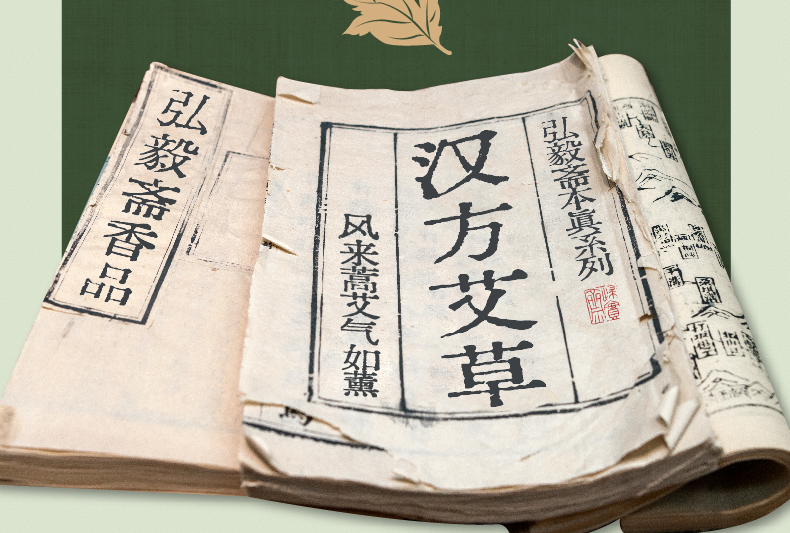 弘毅斋本真系列
汉方艾草
风来蒿艾气如薰
弘毅斋香品